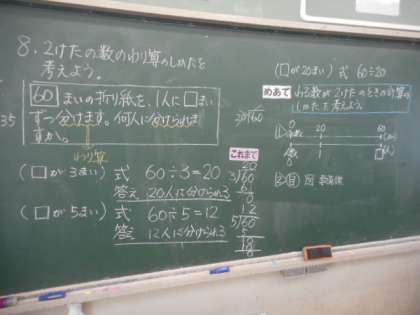 8.2けたの数のわり算のしかたを
考えよう。
60 まいの折り紙を、1人に□まい
ずつ分けます。何人に分けられま
すか。
35
わり算
(□が3まい) 式 60÷3=20
答え 20人に分けられる
(□が5まい) 式 60÷5=12
答え 12人に分けられる
20)60
これまで
20
3)60
6
0
12
5)60
5
10
(□が20まい) 式 60÷20
めあて わる数が2けたのときの計算の
しかたを考えよう。
0 20 60
0 1 □
図 数直線